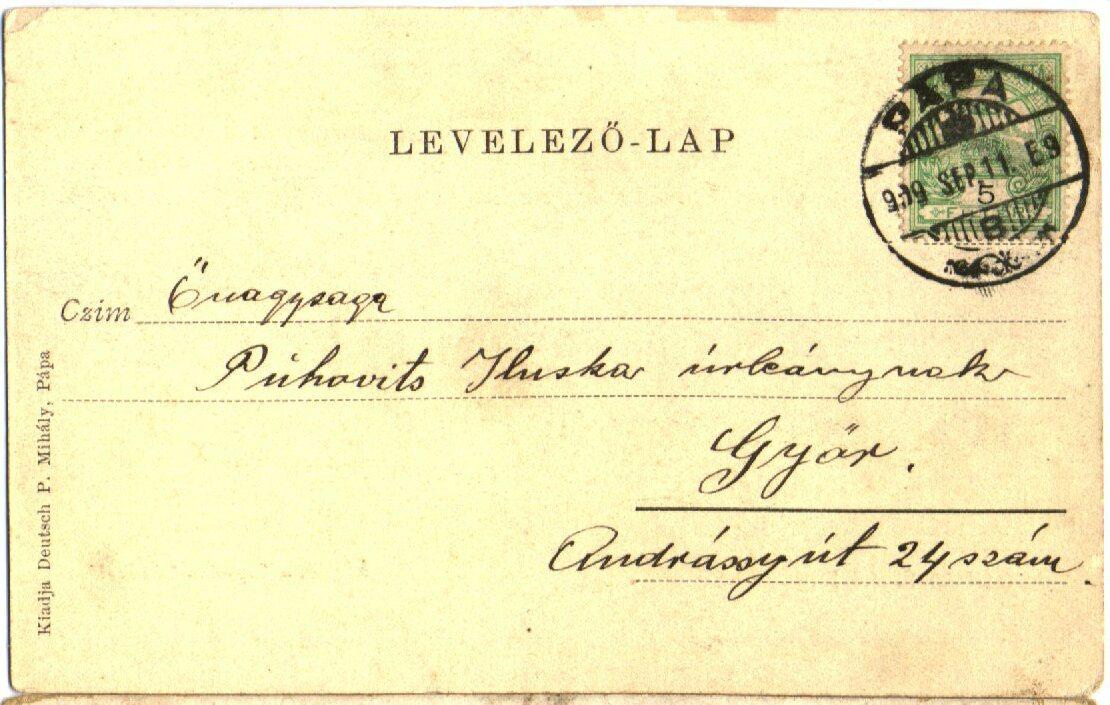 LEVELEZŐ-LAP
PÁPA
909 SEP. 11. E9
5
F
B
Czim Őnagysaga
Púhovits Iluska úrleánynak
Győr.
Andrássy út 24 szám.
Kiadja Deutsch P. Mihály, Pápa